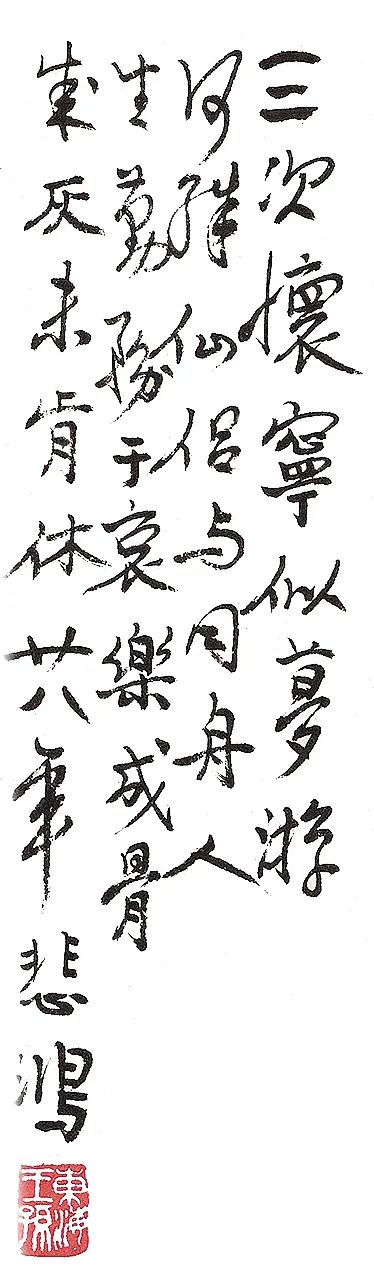 三次懷寧似夢游
何殊仙侣与同舟人
生勤務于哀樂成骨
成灰未肯休廿八年悲鴻
東海王孫